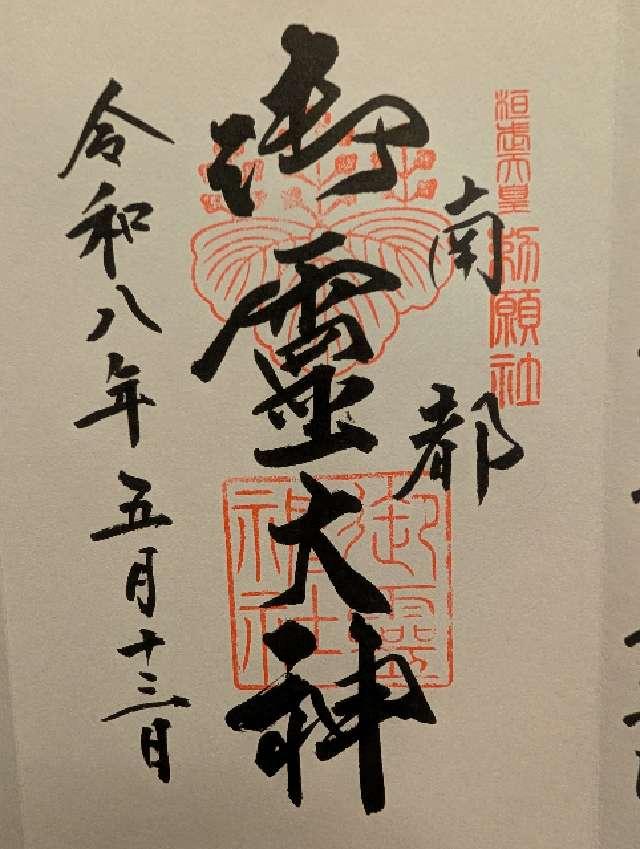 桓武天皇
勅願社
南都
御靈大神
御霊
神社
令和八年五月十三日